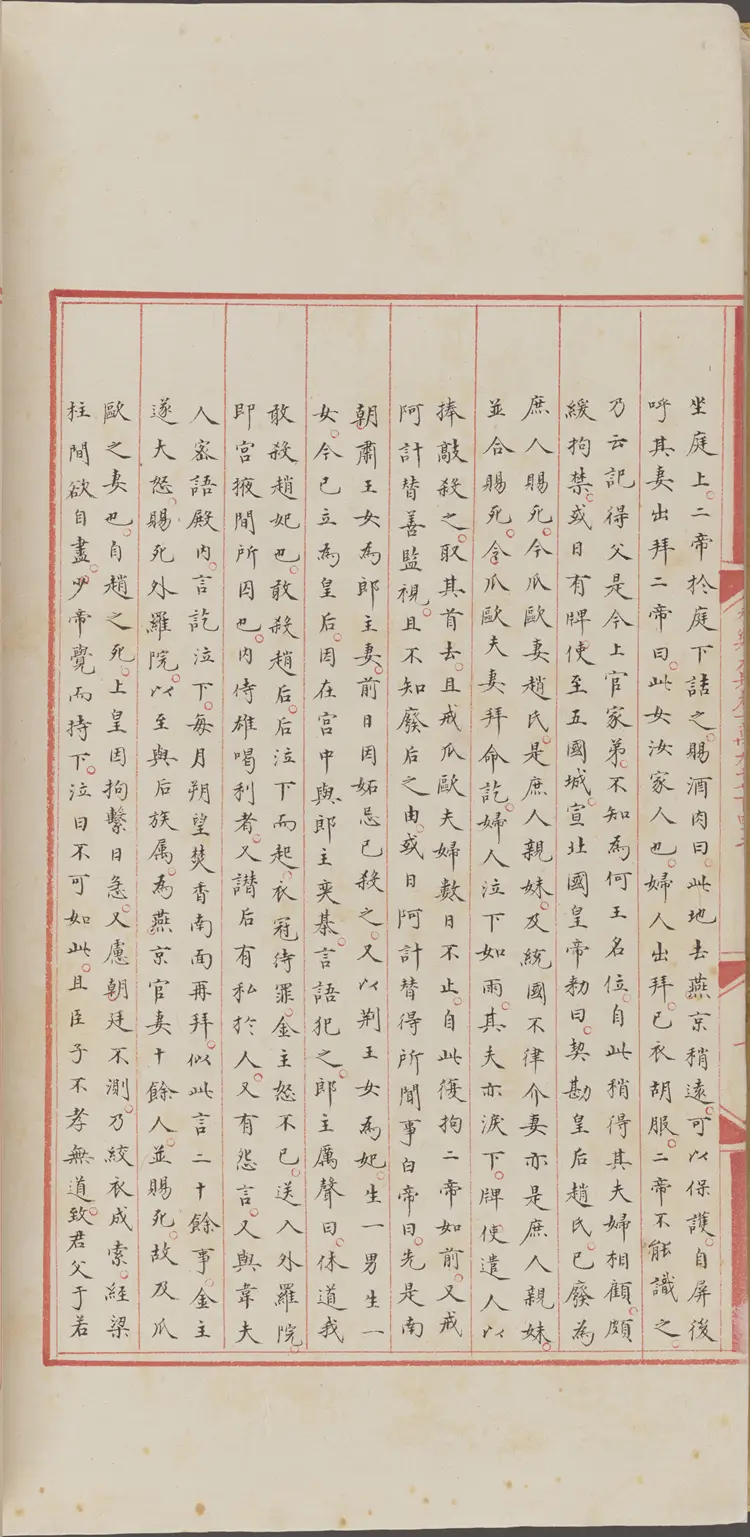 坐庭上。二帝於庭下詰之。賜酒肉曰。此地去燕京稍遠。可以保護。自屏後
呼其妻出拜二帝曰。此女汝家人也。婦人出拜。已衣胡服。二帝不能識之。
乃云記得父是今上官家弟。不知為何王名位。自此稍得其夫婦相顧。頗
緩拘禁。或日有牌使至五國城。宣北國皇帝勅曰。契勘皇后趙氏。已廢為
庶人賜死。今爪歐妻趙氏。是庶人親妹。及統國不律介妻亦是庶人親妹。
並合賜死。令爪歐夫妻拜命訖。婦人泣下如雨。其夫亦淚下。牌使遣人以
捧敲殺之。取其首去。且戒爪歐夫婦數日不止。自此復拘二帝如前。又戒
阿計替善監視。且不知廢后之由。或日阿計替得所聞事白帝曰。先是南
朝肅王女為郎主妻。前日因妬忌已殺之。又以荆王女為妃。生一男生一
女。今已立為皇后。因在宮中與郎主奕棊。言語犯之。郎主厲聲曰。休道我
敢殺趙妃也。敢殺趙后。后泣下而起。衣冠待罪。金主怒不已。送入外羅院。
即宮掖間所因也。內侍雄喝利者。又譛后有私於人。又有怨言。又與韋夫
人密語殿內。言訖泣下。每月朔望焚香南面再拜。似此言二十餘事。金主
遂大怒。賜死外羅院。以至與后族属。為燕京官妻十餘人。並賜死。故及爪
歐之妻也。自趙之死。上皇因拘繫日急。又慮朝廷不測。乃絞衣成索。經梁
柱間欲自盡。少帝覺而持下。泣曰不可如此。且臣子不孝無道。致君父于若